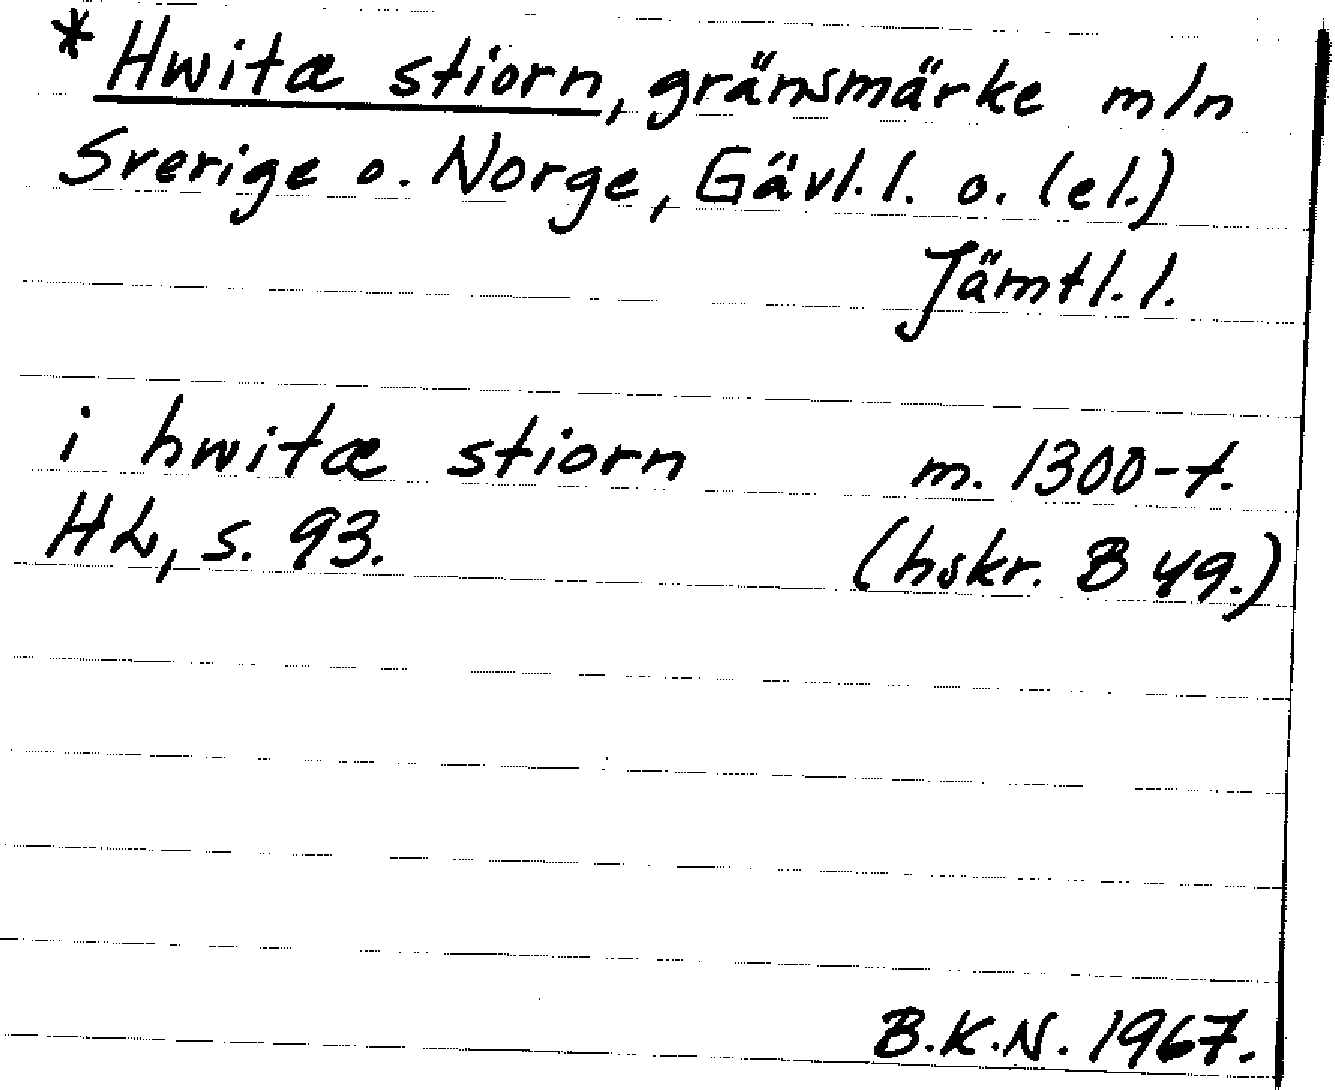 *Hwitæ stiorn, gränsmärke mln
Sverige o. Norge, Gävl. l. o. (el.)
Jämtl. l.
i hwitæ stiorn m. 1300-t.
HL, s. 93. (hskr. B 49.)
B.K.N. 1967.